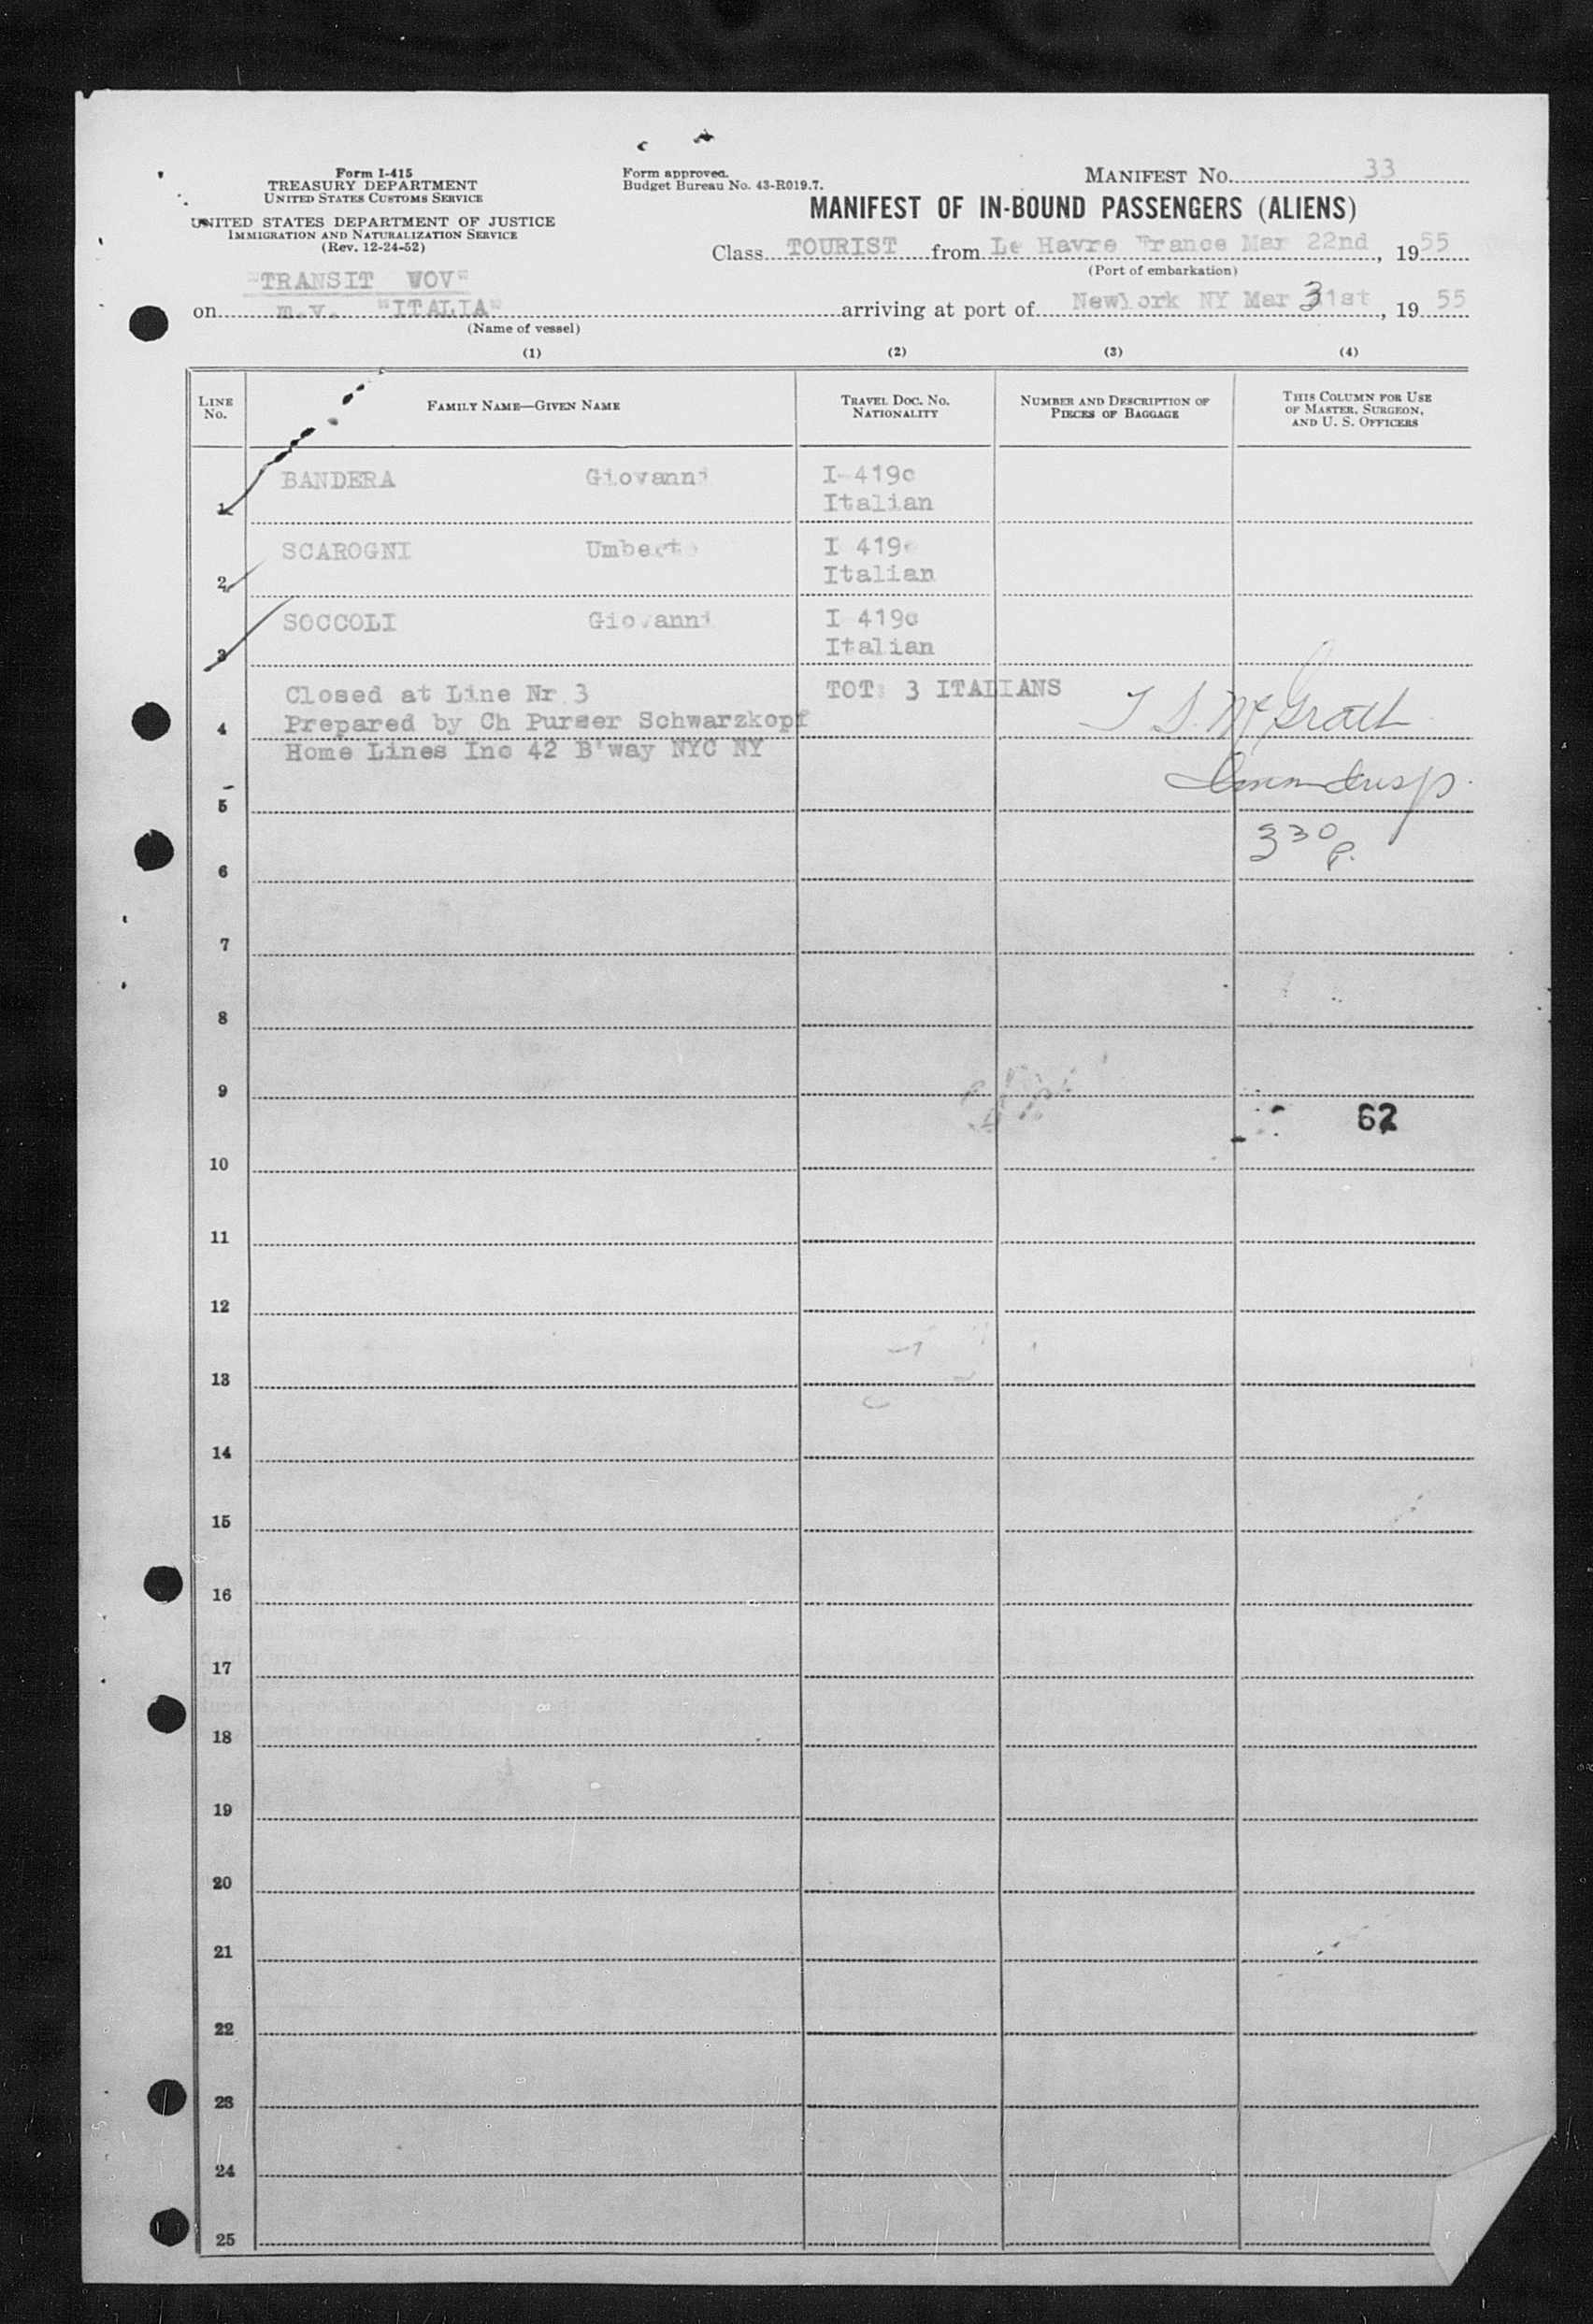 Form I-415
TREASURY DEPARTMENT
UNITED STATES CUSTOMS SERVICE
UNITED STATES DEPARTMENT OF JUSTICE
IMMIGRATION AND NATURALIZATION SERVICE
(Rev. 12-24-52)
Form approved.
Budget Bureau No. 43-R019.7.
MANIFEST NO. 33
MANIFEST OF IN-BOUND PASSENGERS (ALIENS)
Class TOURIST from Le Havre France Mar 22nd, 1955
(Port of embarkation)
"TRANSIT WOV"
on m.v. "ITALIA" arriving at port of NewYork NY Mar 31st, 1955
(Name of vessel)
(1) (2) (3) (4)
LINE NO. FAMILY NAME—GIVEN NAME TRAVEL DOC. NO. NATIONALITY NUMBER AND DESCRIPTION OF PIECES OF BAGGAGE THIS COLUMN FOR USE OF MASTER, SURGEON, AND U. S. OFFICERS
1 BANDERA Giovanni I-419c
Italian
2 SCAROGNI Umberto I 419c
Italian
3 SOCCOLI Giovanni I 419c
Italian
Closed at Line Nr 3 TOT: 3 ITALIANS
4 Prepared by Ch Purser Schwarzkopf
Home Lines Inc 42 B'way NYC NY
T S. McGrath
Imm Insp.
5
330 P.
6
7
8
9
62
10
11
12
13
14
15
16
17
18
19
20
21
22
23
24
25